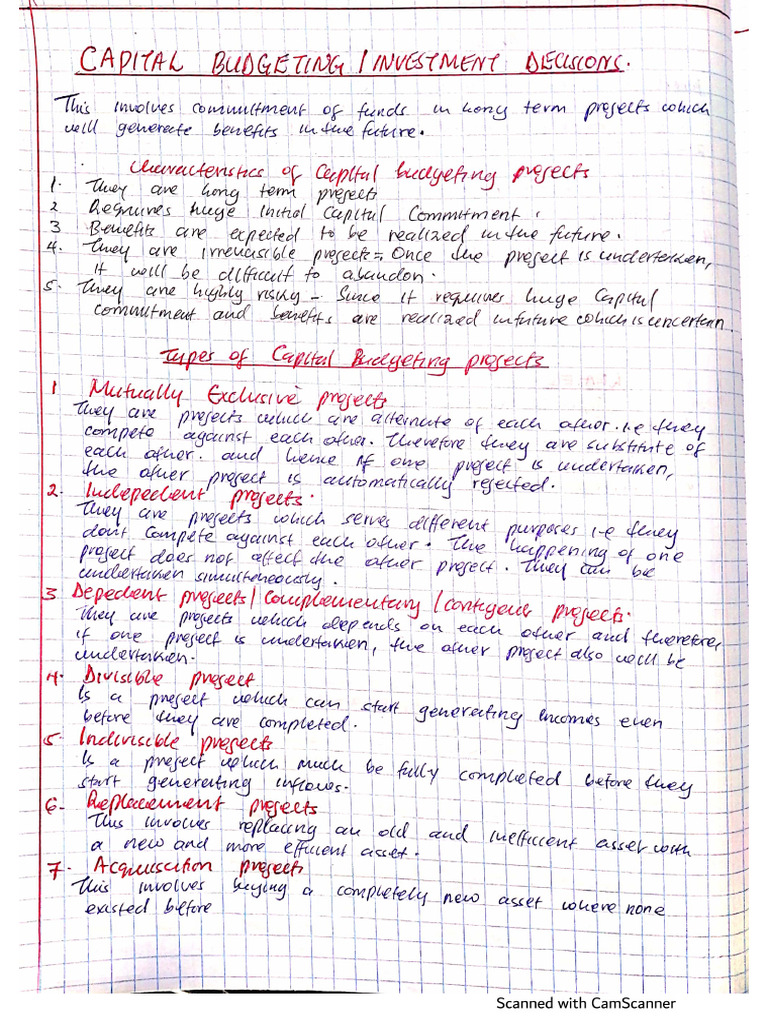 CAPITAL BUDGETING / INVESTMENT DECISIONS.
This involves commitment of funds in long term projects which
will generate benefits in the future.
Characteristics of Capital budgeting projects
1. They are long term projects
2 Requires huge initial Capital Commitment.
3 Benefits are expected to be realized in the future.
4. They are irreversible projects = Once the project is undertaken,
it will be difficult to abandon.
5. They are highly risky - Since it requires huge Capital
commitment and benefits are realized in future which is uncertain
Types of Capital Budgeting projects
1 Mutually Exclusive projects
They are projects which are alternate of each other. i.e they
compete against each other. Therefore they are substitute of
each other. and hence if one project is undertaken,
the other project is automatically rejected.
2. Indepedent projects.
They are projects which serves different purposes i.e they
dont compete against each other. The happening of one
project does not affect the other project. They can be
undertaken simultaneously.
3 Depedent projects / Complementary / Contigent projects.
They are projects which depends on each other and therefore,
if one project is undertaken, the other project also will be
undertaken.
4. Divisible project
Is a project which can start generating incomes even
before they are completed.
5. Indivisible projects
Is a project which much be fully completed before they
start generating inflows.
6- Replacement projects
This involves replacing an old and inefficient asset with
a new and more efficient asset.
7. Acquisation projects
This involves buying a completely new asset where none
existed before
Scanned with CamScanner